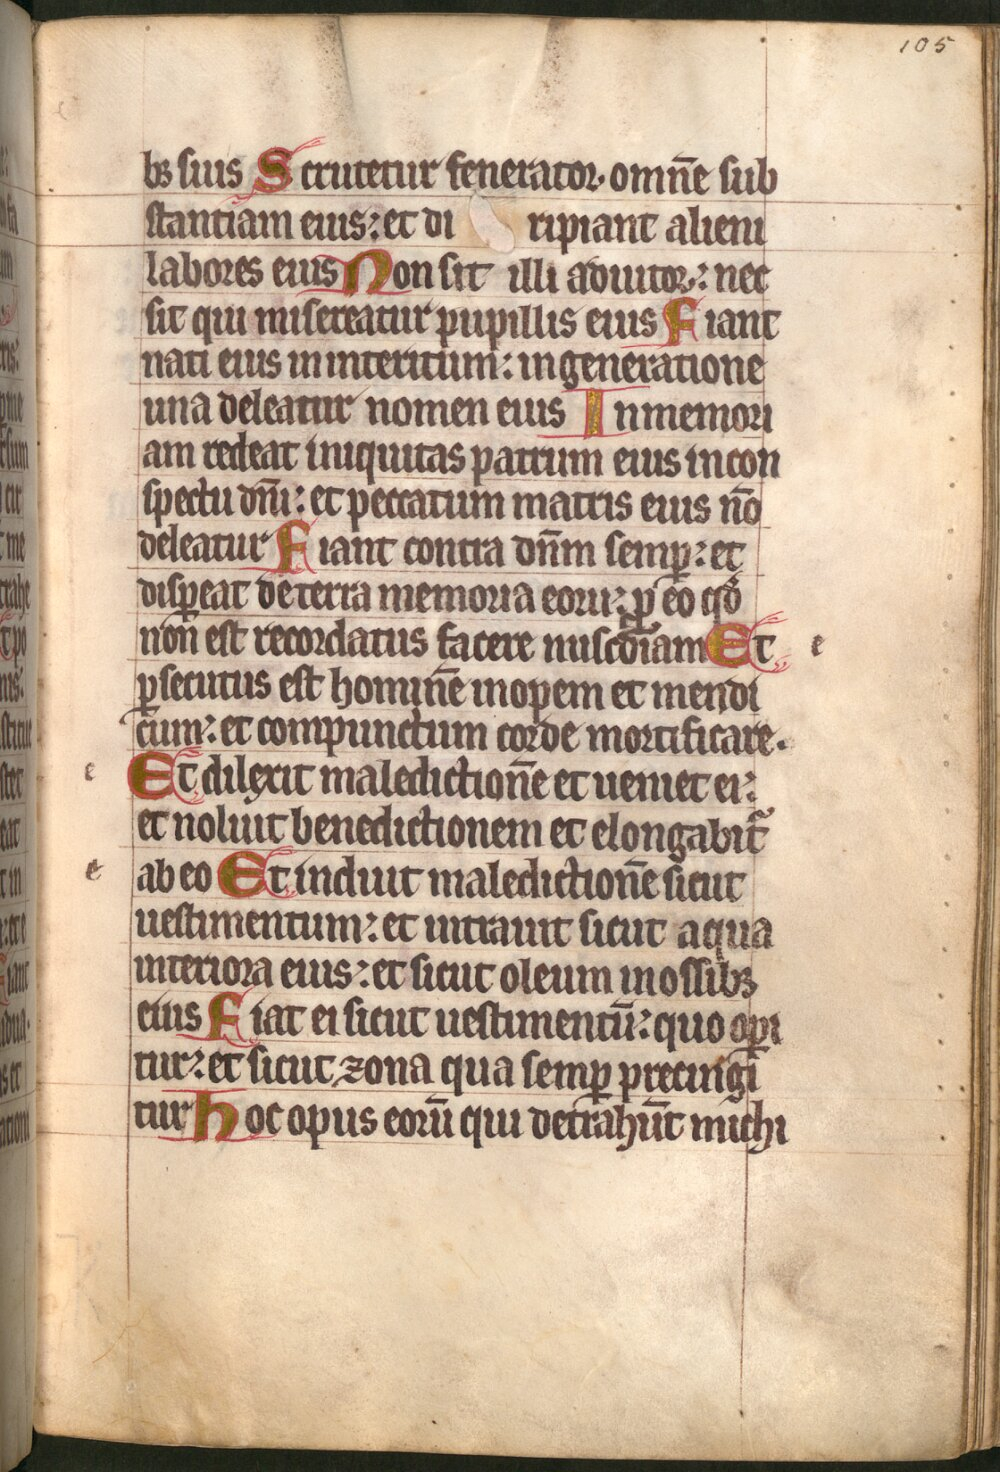 105
bꝫ suis Scrutetur fenerator. omnē sub
stantiam eius: et di ripiant alieni
labores eius Non sit illi adiutor: nec
sit qui misereatur pupillis eius Fiant
nati eius in interitum: in generatione
una deleatur nomen eius In memori
am redeat iniquitas patrum eius in con
spectu dn̄i: et peccatum matris eius nō
deleatur Fiant contra dn̄m semꝑ: et
disꝑeat de terra memoria eorū: ꝓ eo qd̓
non est recordatus facere misc̄diam Et
e
ꝑsecutus est hominē inopem et mendi
cum: et compunctum corde mortificare.
e
Et dilexit maledictionē et ueniet ei:
et noluit benedictionem et elongabit᷑
e
ab eo Et induit maledictionē sicut
uestimentum: et intrauit sicut aqua
interiora eius: et sicut oleum in ossibꝫ
eius Fiat ei sicut uestimentū: quo oꝑi
tur: et sicut zona qua semꝑ precingi
tur Hoc opus eorū qui detrahūt michi